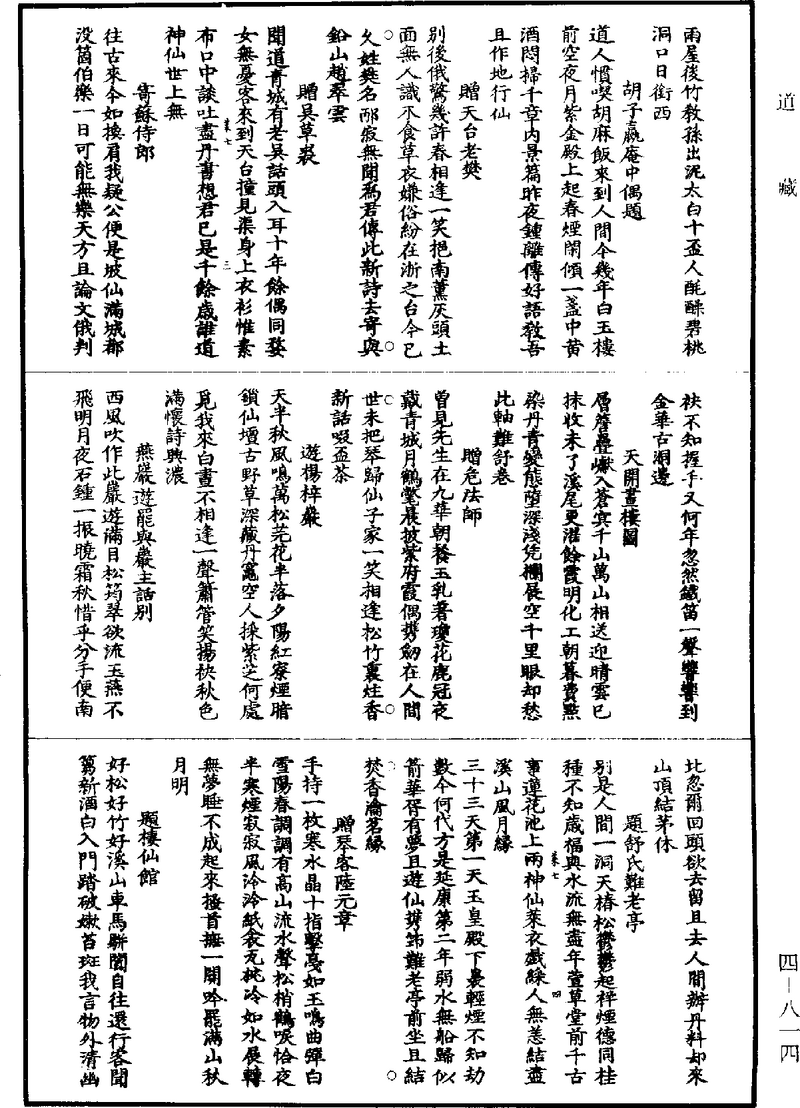 道藏
雨屋後竹教孫出泥太白十盃人酕醄碧桃
洞口日銜西
胡子嬴庵中偶題
道人慣喫胡麻飯來到人間今幾年白玉樓
前空夜月紫金殿上起春煙閑傾一盞中黃
酒悶掃千章內景篇昨夜鍾離傳好語教吾
且作地行仙
贈天台老樊
別後俄驚幾許春相逢一笑挹南薰灰頭土
面無人識木食草衣嫌俗紛在浙之台今已
久姓樊名邴寂無聞為君傳此新詩去寄與
鉛山趙翠雲
贈吳草裘
聞道青城有老吳話頭入耳十年餘偶同婺
女無憂客來到天台撞見渠身上衣衫惟素
布口中談吐盡丹書想君已是千餘歲誰道
神仙世上無
寄蘇侍郎
往古來今如換肩我疑公便是坡仙滿城都
沒箇伯樂一日可能無樂天方且論文俄判
卷七
三
袂不知握手又何年忽然鐵笛一聲響響到
金華古洞邊
天開畫樓圖
層簷疊巘入蒼冥千山萬山相送迎晴雲已
抹收未了溪尾更濯餘霞明化工朝暮費點
染丹青變態墮深淺凭欄展空千里眼却愁
此軸難舒卷
贈危法師
曾見先生在九華朝餐玉乳著瓊花鹿冠夜
戴青城月鶴氅晨披紫府霞偶携劒在人間
世未把琴歸仙子家一笑相逢松竹裏炷香
新話啜盃茶
遊楊梓巖
天半秋風鳴萬松芫花半落夕陽紅寮煙暗
鎖仙壇古野草深藏丹竈空人採紫芝何處
覓我來白晝不相逢一聲簫管笑揚袂秋色
滿懷詩興濃
燕巖遊罷與巖主話別
西風吹作此巖遊滿目松筠翠欲流玉燕不
飛明月夜石鍾一振曉霜秋惜乎分手便南
比忽爾回頭欲去留且去人間辦丹料却來
山頂結茅休
題舒氏難老亭
別是人間一洞天椿松鬱鬱起祥煙德同桂
種不知歲福與水流無盡年萱草堂前千古
事蓮花池上兩神仙萊衣戲綵人無恙結盡
溪山風月緣
卷七
四
三十三天第一天玉皇殿下裊輕煙不知劫
數今何代方是延康第二年弱水無船歸似
箭華胥有夢且遊仙携筇難老亭前坐且結
焚香瀹茗緣
贈琴客陸元章
手持一枚寒水晶十指擊戞如玉鳴曲彈白
雪陽春調調有高山流水聲松梢鶴唳恰夜
半寒煙寂寂風泠泠紙衾瓦枕冷如水展轉
無夢睡不成起來搔首撫一闋吟罷滿山秋
月明
題棲仙館
好松好竹好溪山車馬駢闐自往還行客聞
篘新酒白入門踏破嫩苔斑我言物外清幽
四—八一四